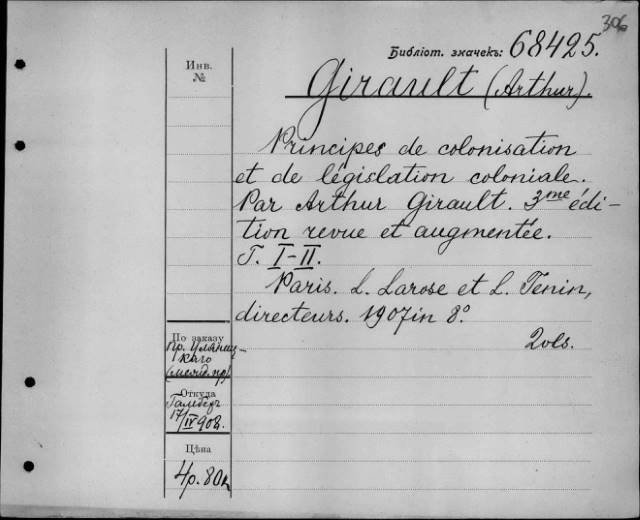 306
Библіот. значекъ: 68425.
Инв.
№
Girault (Arthur).
Principes de colonisation
et de législation coloniale.
Par Arthur Girault. 3me édi-
tion revue et augmentée.
T. I-II.
Paris. L. Larose et L. Tenin,
directeurs. 1907 in 8°.
2 vls.
По заказу
пр. Уляниц-
каго
Откуда
17/IV 908.
Цѣна
4 р. 80 к.